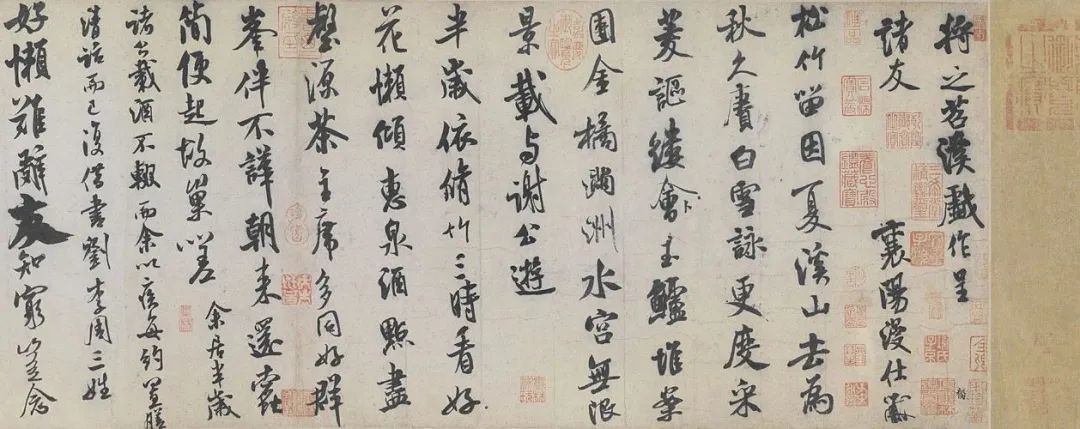 將之苕溪戲作呈
諸友 襄陽漫仕黻
松竹留因夏溪山去為
秋久賡白雪詠更度采
菱謳縷會玉鱸堆案
團金橘滿洲水宮無限
景載与謝公遊
半歲依脩竹三時看好
花懶傾惠泉酒點盡
壑源茶主席多同好群
峯伴不譁朝來還蠹
簡便起故巢嗟 余居半歲
諸公載酒不輟而余以疾每約置膳
清話而已復借書劉李周三姓
好懶難辭友知窮豈念